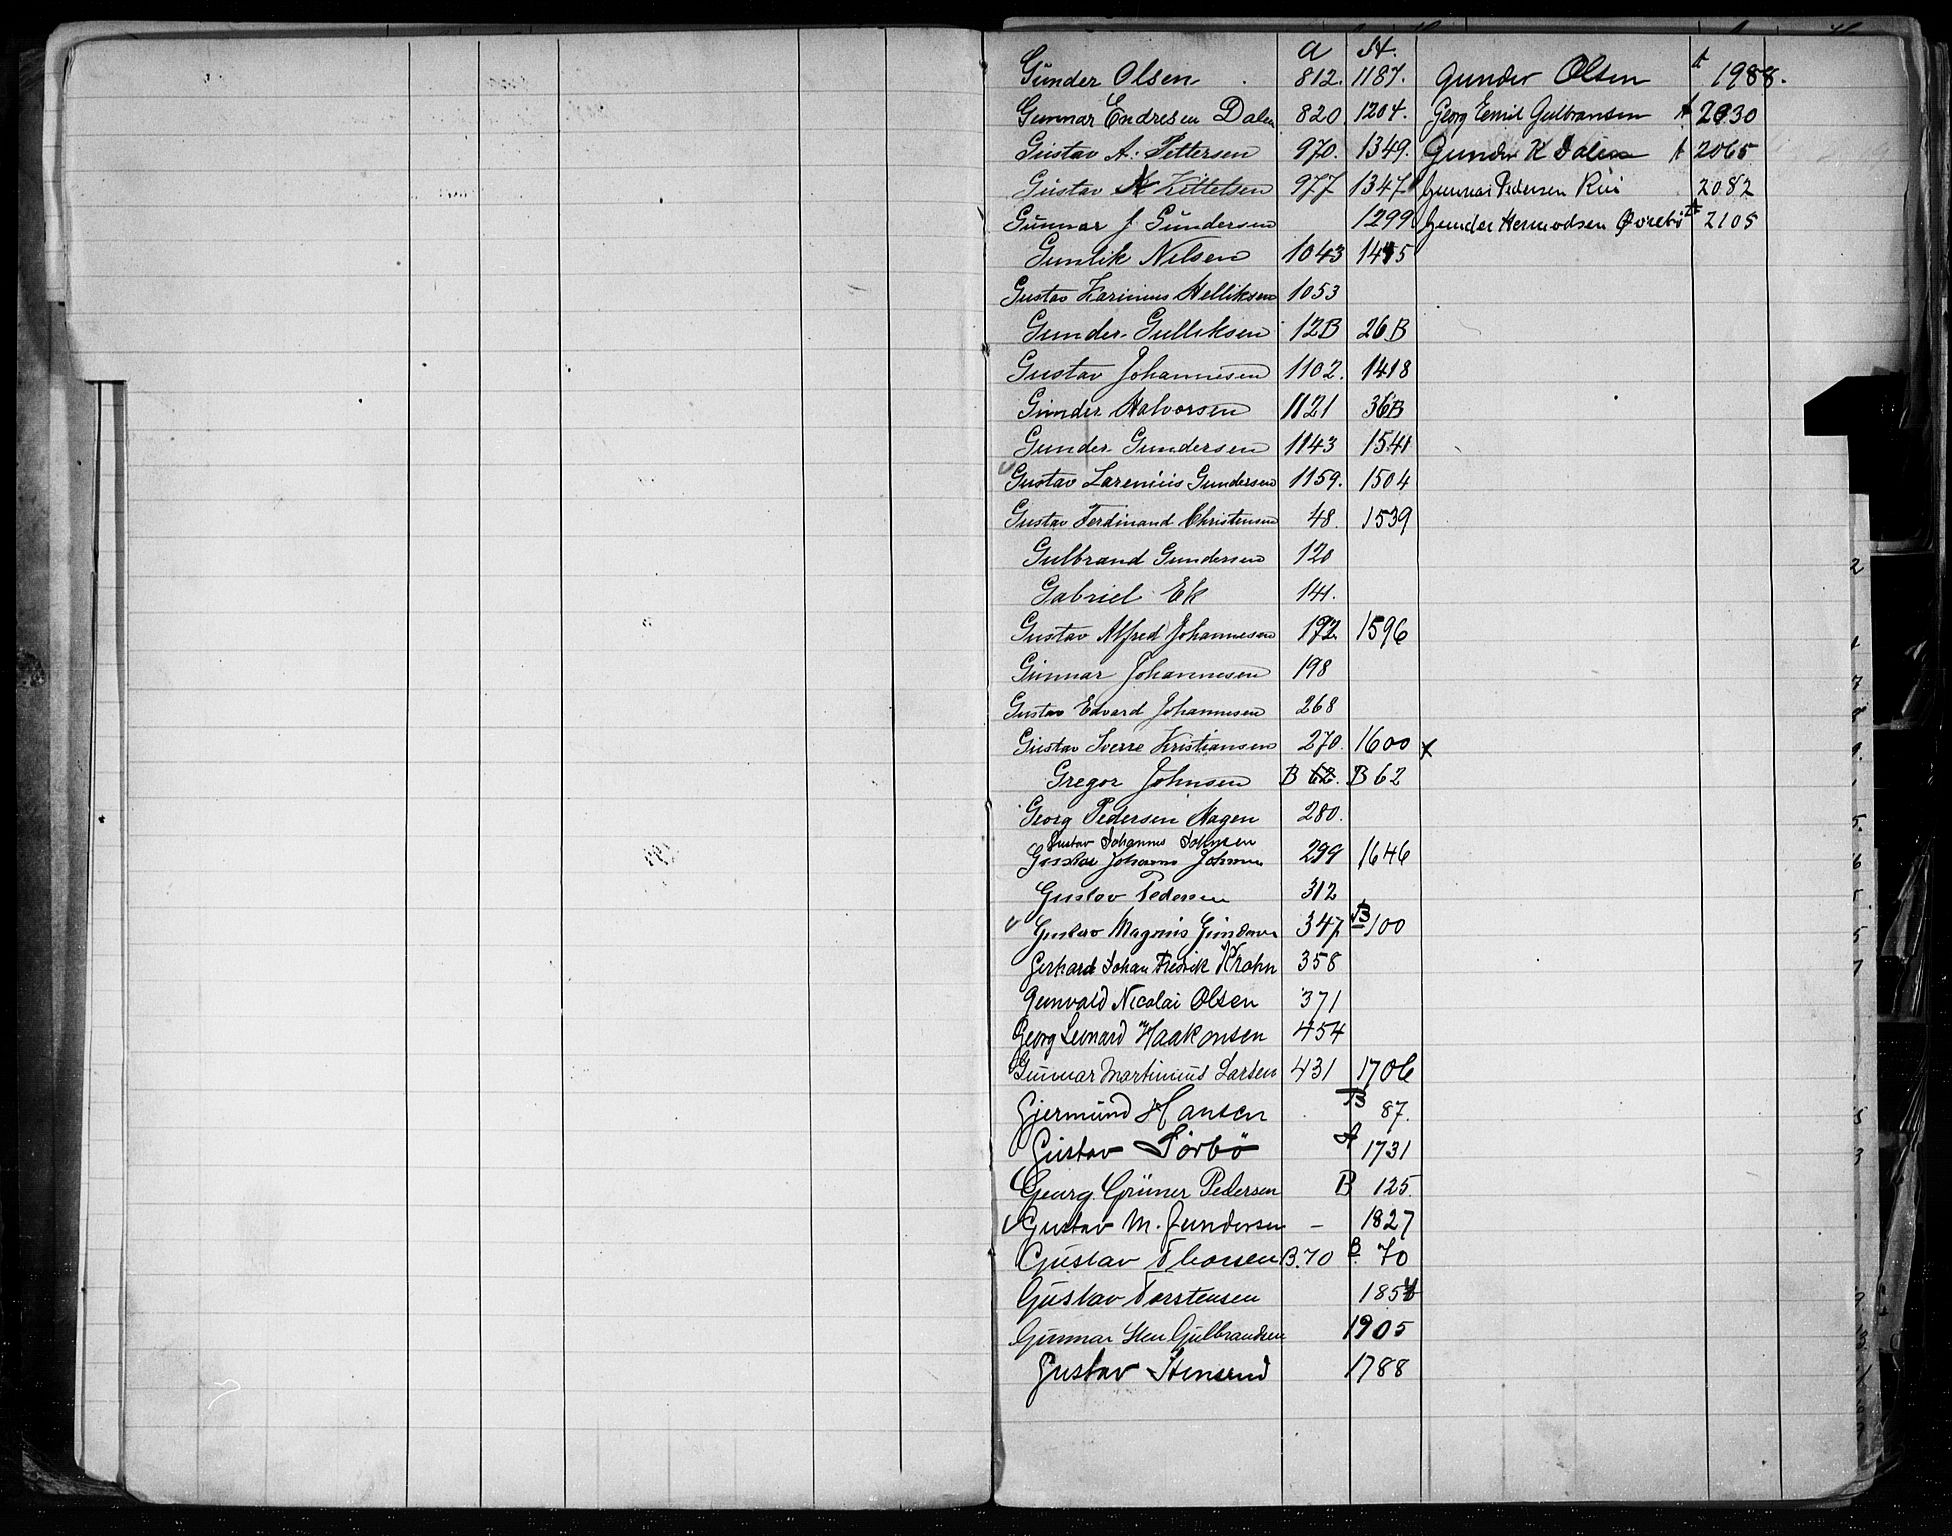 a St.
Gunder Olsen 812. 1187. Gunder Olsen A 1988.
Gunnar Endresen Dalen 820 1204. Georg Emil Gulbransen A 2030
Gustav A. Pettersen 970. 1349. Gunder K Dalen A 2065
Gustav A Kittelsen 977 1347 Gunnar Pedersen Rui 2082
Gunnar J. Gundersen 1299 Gunder Hermodsen Øvrebø A 2105
Gunlik Nilsen 1043 1415
Gustav Karinius Helliksen 1053
Gunder Gulliksen 12B 26B
Gustav Johannesen 1102. 1418
Gunder Halvorsen 1121 36B
Gunder Gundersen 1143 1541
Gustav Larenius Gundersen 1159. 1504
Gustav Ferdinand Christensen 48. 1539
Gulbrand Gundersen 120
Gabriel Ek 141.
Gustav Alfred Johannesen 192 1596
Gunnar Johannesen 198
Gustav Edvard Johannesen 268
Gustav Sverre Kristiansen 270. 1600 x
Gregor Johnsen B 62. B 62
Georg Pedersen Hagen 280.
Gustav Johannes Johnsen
Gustav Johannes Johnsen 299 1646
Gustav Pedersen 312
Gustav Magnus Gundersen 347 B 100
Gerhard Johan Fredrik Krohn 358
Gunvald Nicolai Olsen 371
Georg Leonard Haakonsen 454
Gunnar Martinius Larsen 431 1706
Gjermund Hansen B 87.
Gustav Sørbö A 1731
Georg Grüner Pedersen B 125.
Gustav M. Gundersen - 1827
Gustav Thorsen B.70 B. 70
Gustav Torstensen 185
Gunnar Sten Gulbrandsen 1905
Gustav Stensrud 1788